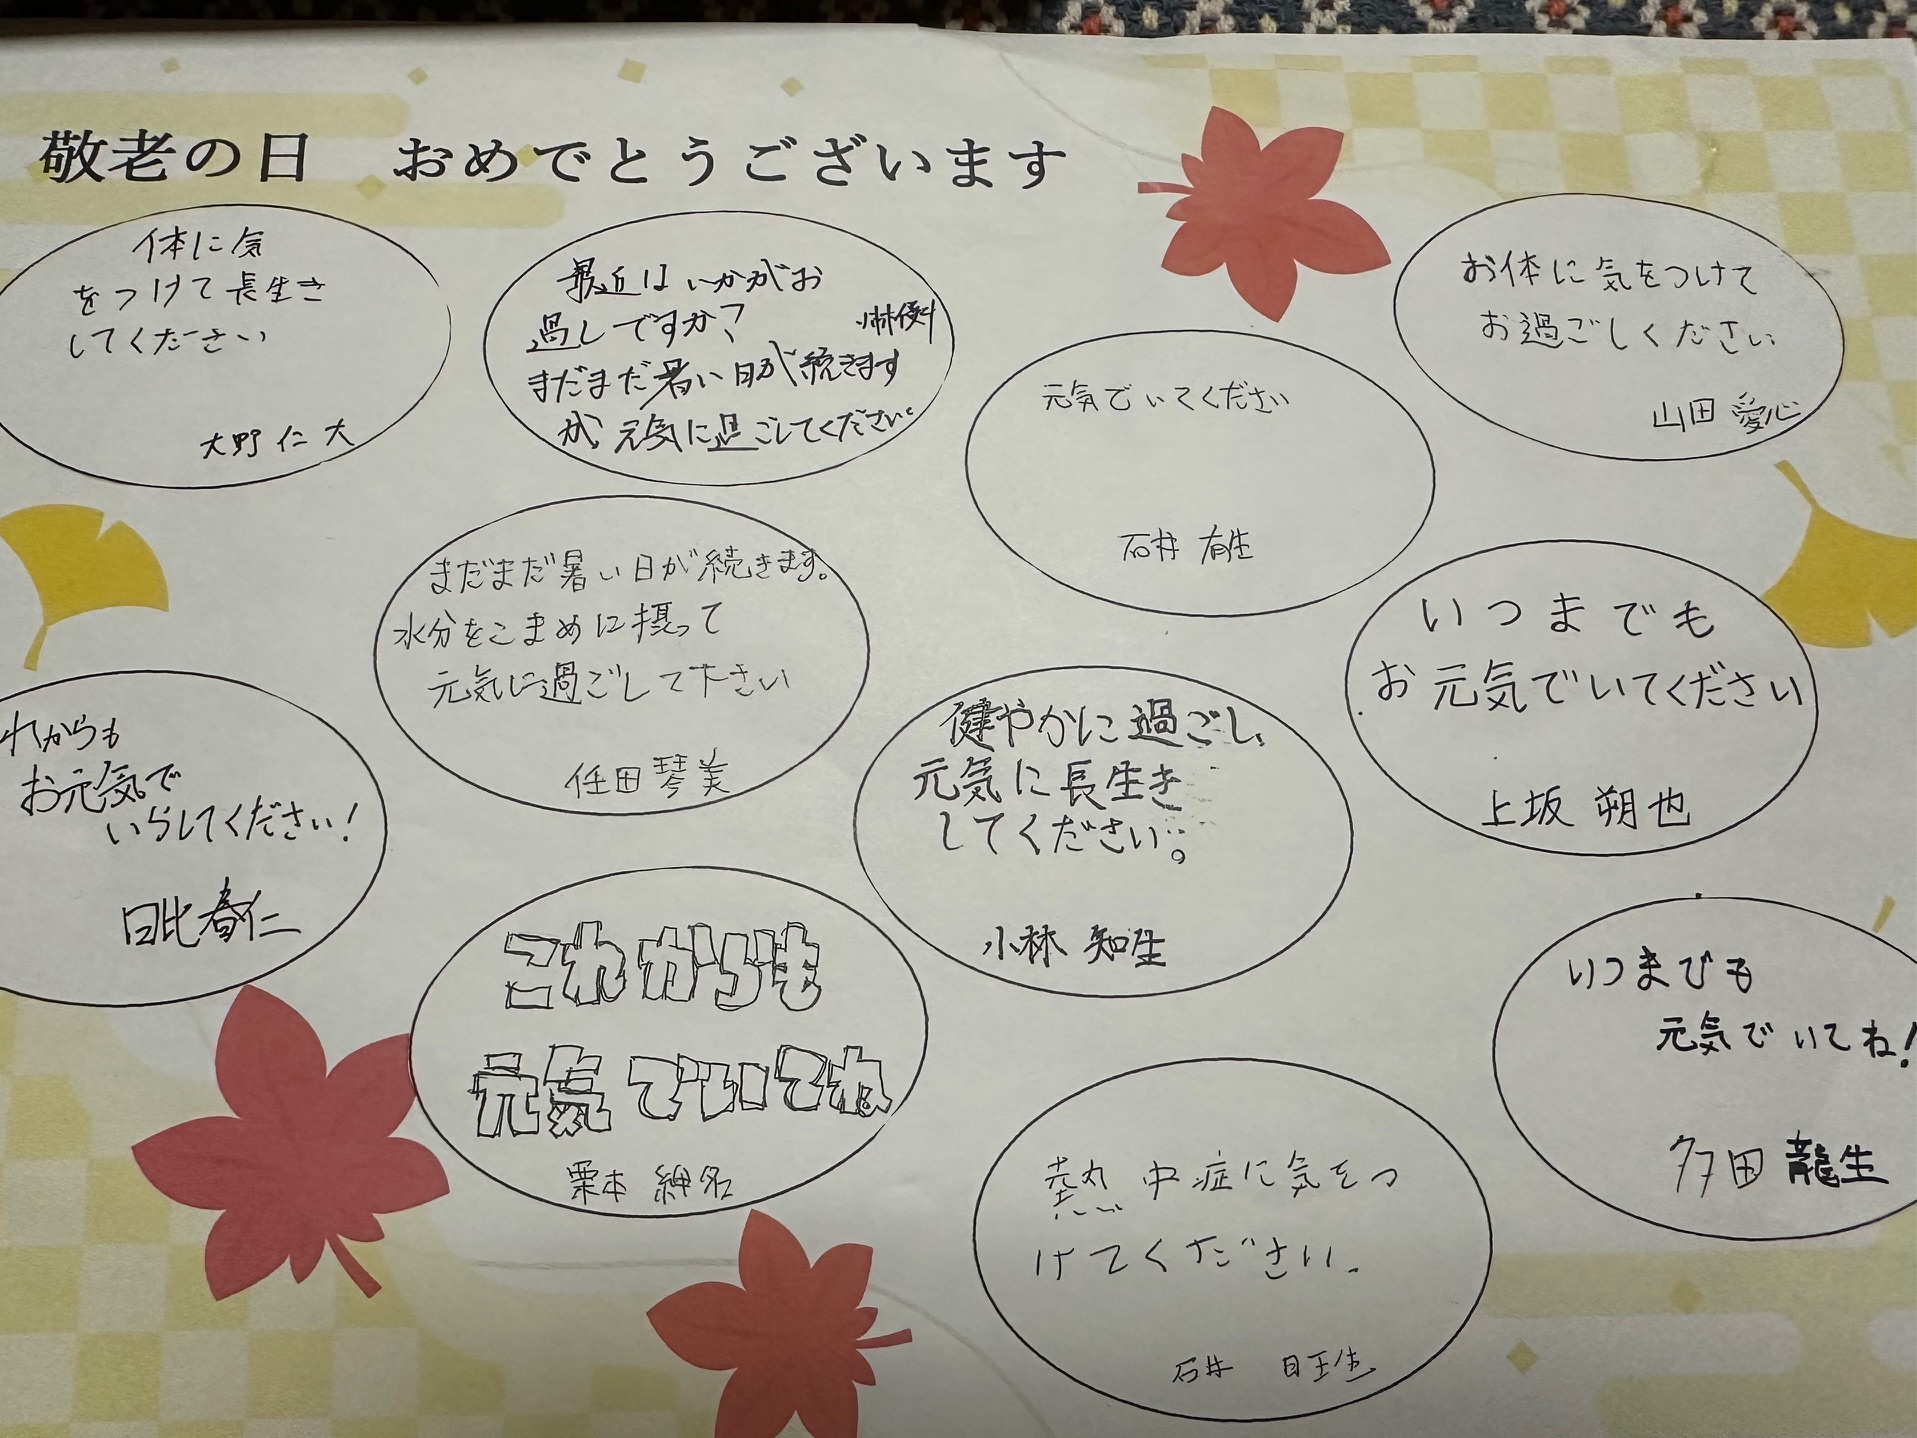 敬老の日 おめでとうございます
体に気
をつけて長生き
してください
大野 仁大
最近はいかがお
過しですか?
小林優
まだまだ暑い日が続きます
が、元気に過ごしてください。
お体に気をつけて
お過ごしください
山田 愛心
元気でいてください
石井 有生
まだまだ暑い日が続きます。
水分をこまめに摂って
元気に過ごして下さい
任田 琴美
いつまでも
お元気でいてください
上坂 朔也
れからも
お元気で
いらしてください!
日比春仁
健やかに過ごし、
元気に長生き
してください。
小林 知生
これからも
元気でいてね
栗本 紳名
いつまでも
元気でいてね!
多田 龍生
熱中症に気をつ
けてください.
石井